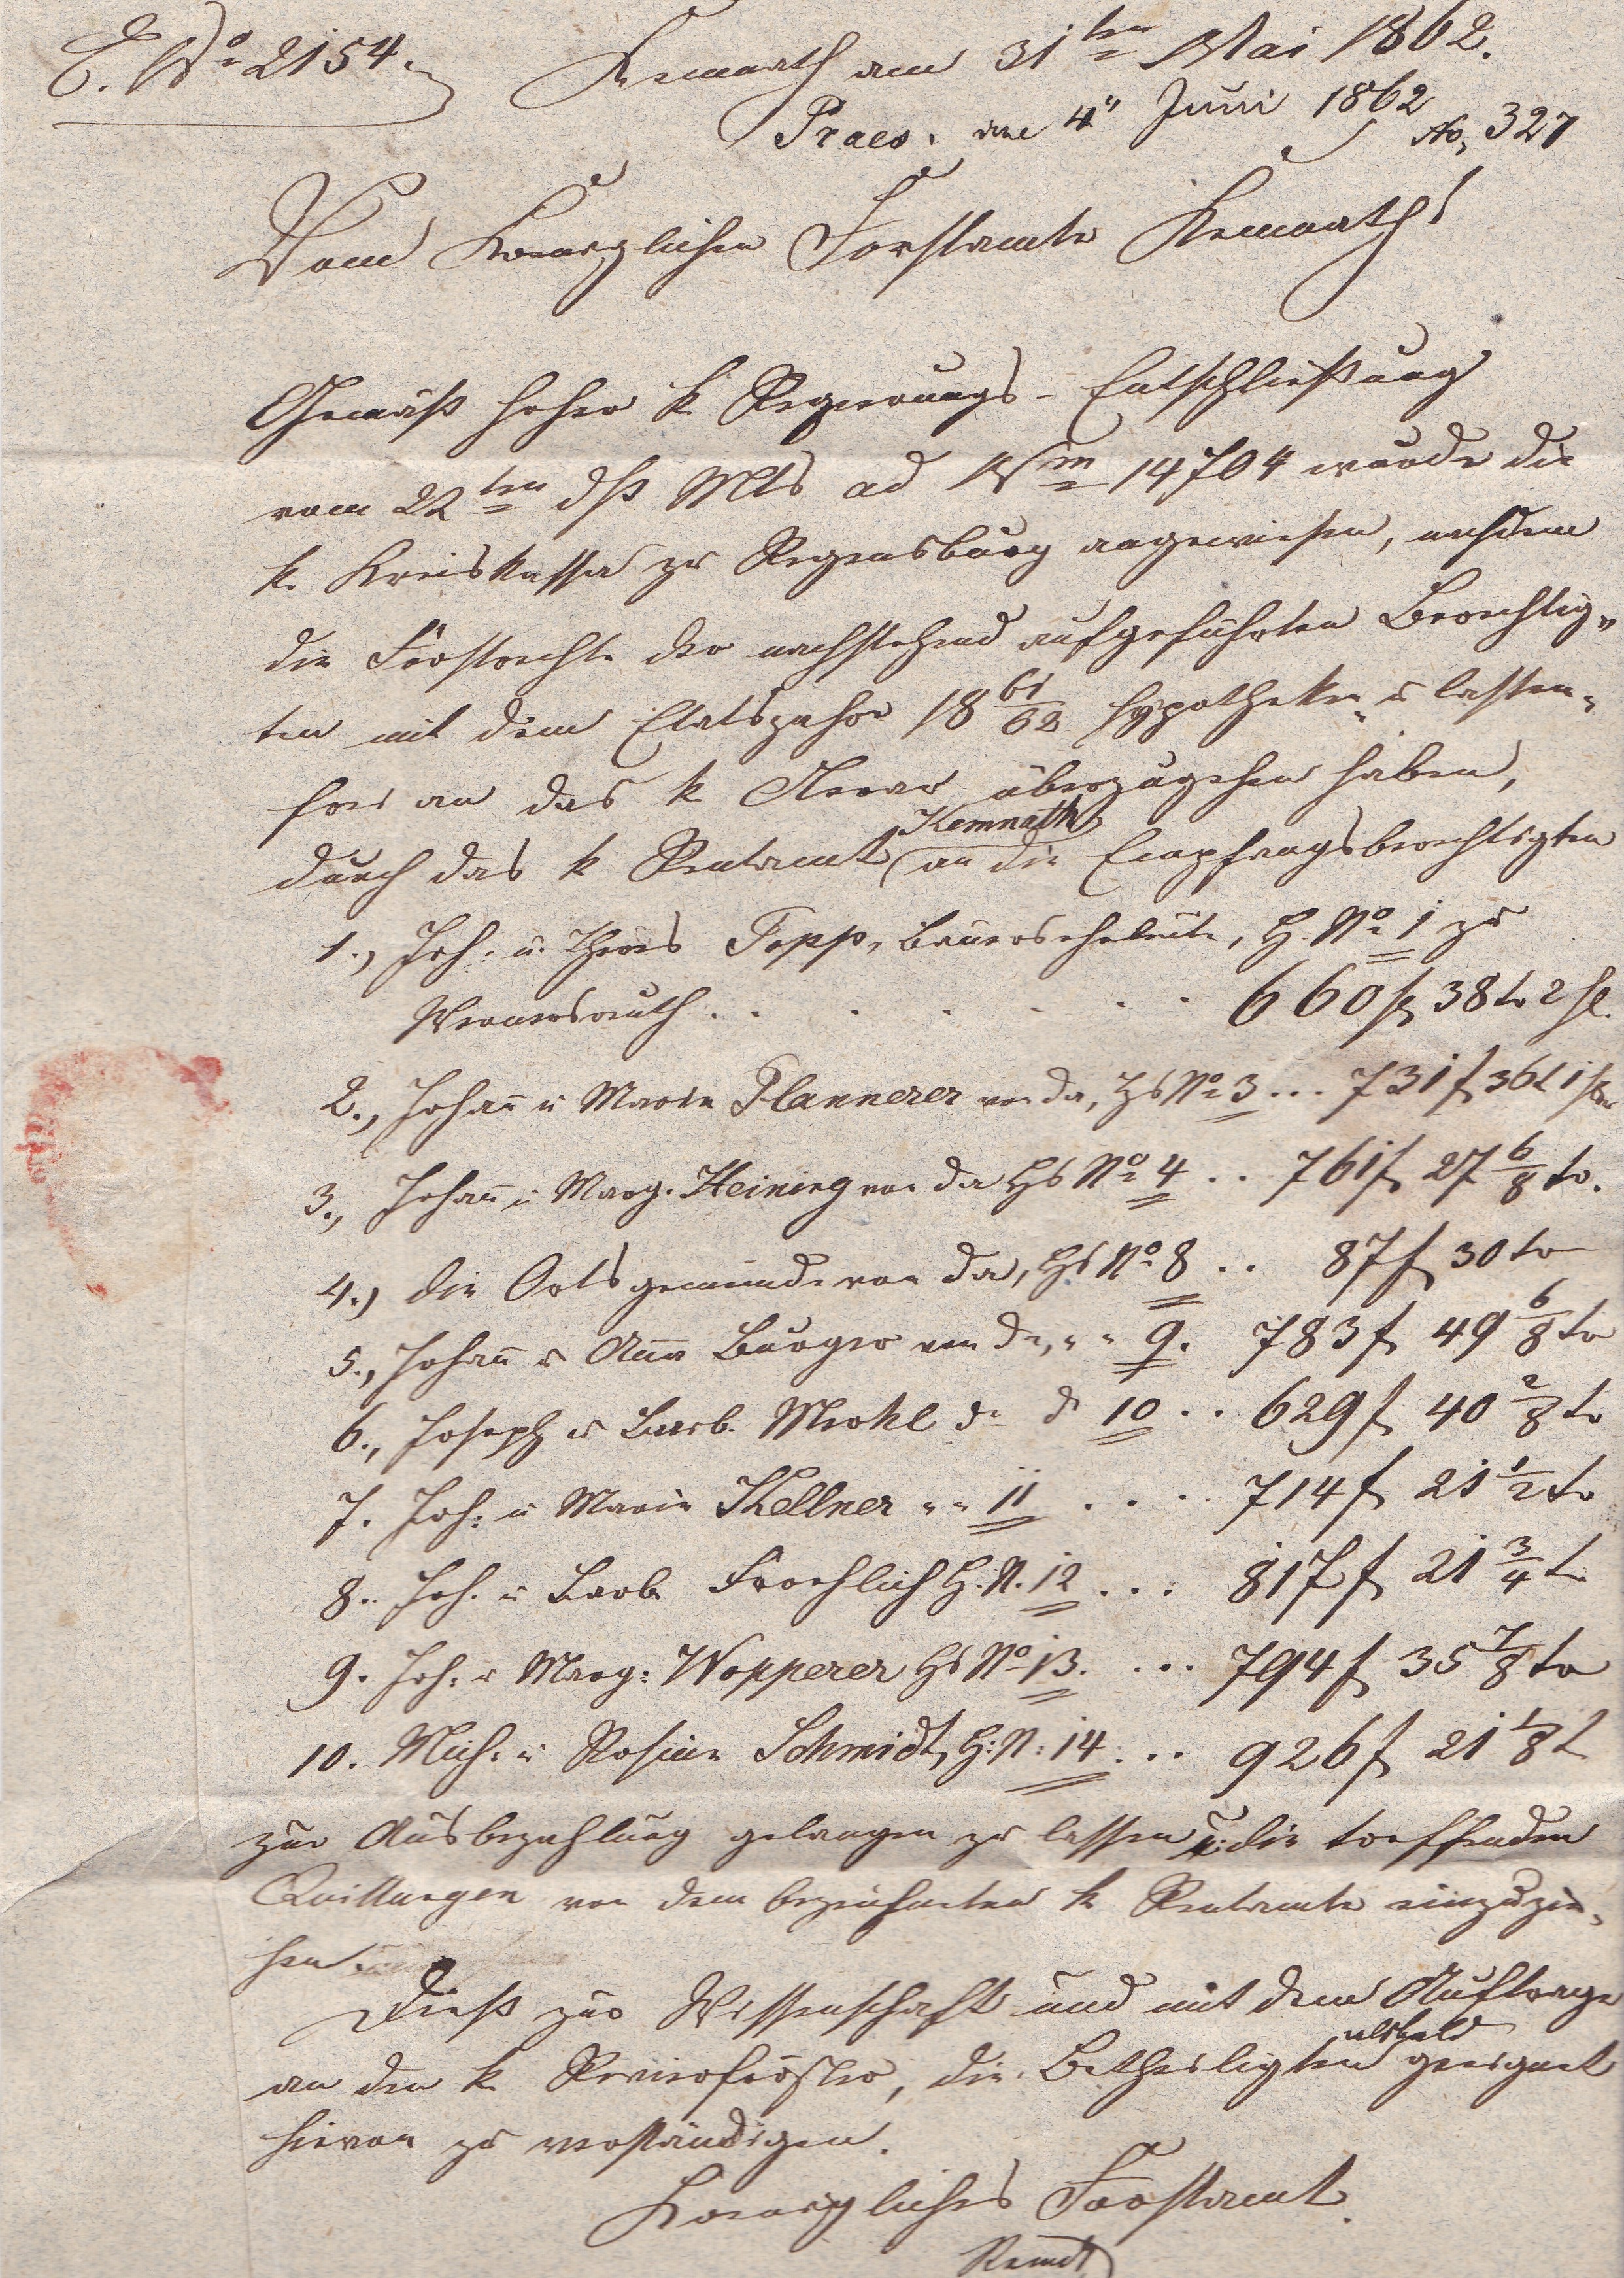 E. No 2154.
Kemnath am 31ten Mai 1862.
Praes. am 4" Juni 1862 No. 327
Vom Koeniglichen Forstamte Kemnath
Gemäß hoher k Regierungs-Entschließung
vom 22ten dß Mts ad Num 14704 wurde die
k. Kreiskassa zu Regensburg angewiesen, nachdem
die Forstrechte der nachstehend aufgeführten Berechtig„
ten mit dem Etatsjahre 1861/62 hypotheken- u lasten-
frei an das k Aerar überzugehen haben,
Kemnath
durch das k Rentamt an die Empfangsberechtigten
1., Joh: u. Theres Popp, Bauerseheleute, H. No 1 zu
Wernersreuth . . . . . . 660 f 38 kr 2 hl.
2., Johann u Maria Plannerer von da, Hs No 3 ... 731 f 36 kr 1
3., Johann u Marg. Heining von da Hs No 4 .. 761 f 27 6/8 kr.
4.) die Ortsgemeinde von da, Hs No 8 .. 87 f 30 kr
5., Johann u Anna Burger von da, " " 9. 783 f 49 6/8 kr
6., Joseph u Barb. Mrohl do do 10 .. 629 f 40 2/8 kr
7. Joh: u Maria Kellner " " 11 . . . . 714 f 21 1/2 kr
8. Joh. u Barb Froehlich H. N. 12 ... 817 f 21 3/4 kr
9. Joh. u Marg: Wopperer Hs No 13. ... 794 f 35 7/8 kr
10. Mich. u Rosina Schmidt, H: N: 14 ... 926 f 21 1/8 kr
zur Ausbezahlung gelangen zu lassen u. die treffenden
Quittungen von dem bezeichneten k Rentamte einzuzie-
hen.
Dieß zur Wissenschaft und mit dem Auftrage
alsbald
an den k. Revierförster, die Betheiligten geeignet
hievon zu verständigen.
Koenigliches Forstamt.